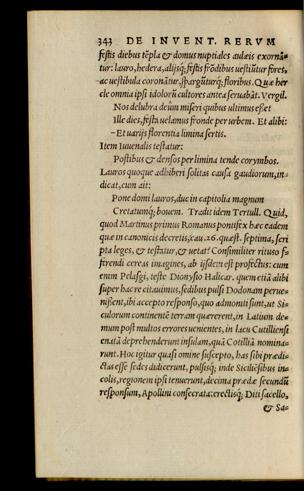 343 DE INVENT. RERVM
festis diebus tẽpla & domus nuptiales aulæis exornã-
tur: lauro, hedera, alijsq; festis frõdibus uestiũtur fores,
ac uestibula coronãtur, spargũturq; floribus. Quæ her
cle omnia ipsi idolorũ cultores antea seruabãt. Vergil.
Nos delubra deûm miseri quibus ultimus esset
Ille dies, festa uelamus fronde per urbem. Et alibi:
-Et uarijs florentia limina sertis.
Item Iuuenalis testatur:
Postibus & densos per limina tende corymbos.
Lauros quoque adhiberi solitas causa gaudiorum, in-
dicat, cum ait:
Pone domi lauros, duc in capitolia magnum
Cretatumq; bouem. Tradit idem Tertull. Quid,
quod Martinus primus Romanus pontifex hæc eadem
quæ in canonicis decretis, cau. 26. quæst. septima, scri
pta leges, & testatur, & uetat? Consimiliter ritus of
ferendi cereas imagines, ab ijsdem est profectus: cum
enim Pelasgi, teste Dionysio Halicar. quem etiã alibi
super hac re citauimus, sedibus pulsi Dodonam perue-
nissent, ibi accepto responso, quo admoniti sunt, ut Si-
culorum continentẽ terram quærerent, in Latium de-
mum post multos errores uenientes, in lacu Cutiliensi
enatã deprehenderunt insulam, quã Cotiliã nomina-
runt. Hoc igitur quasi omine suscepto, has sibi prædi-
ctas esse sedes didicerunt, pulsisq; inde Siciliẽsibus in-
colis, regionem ipsi tenuerunt, decima prædæ secundũ
responsum, Apollini consecrata: erectisq; Diti sacello,
& Sa-